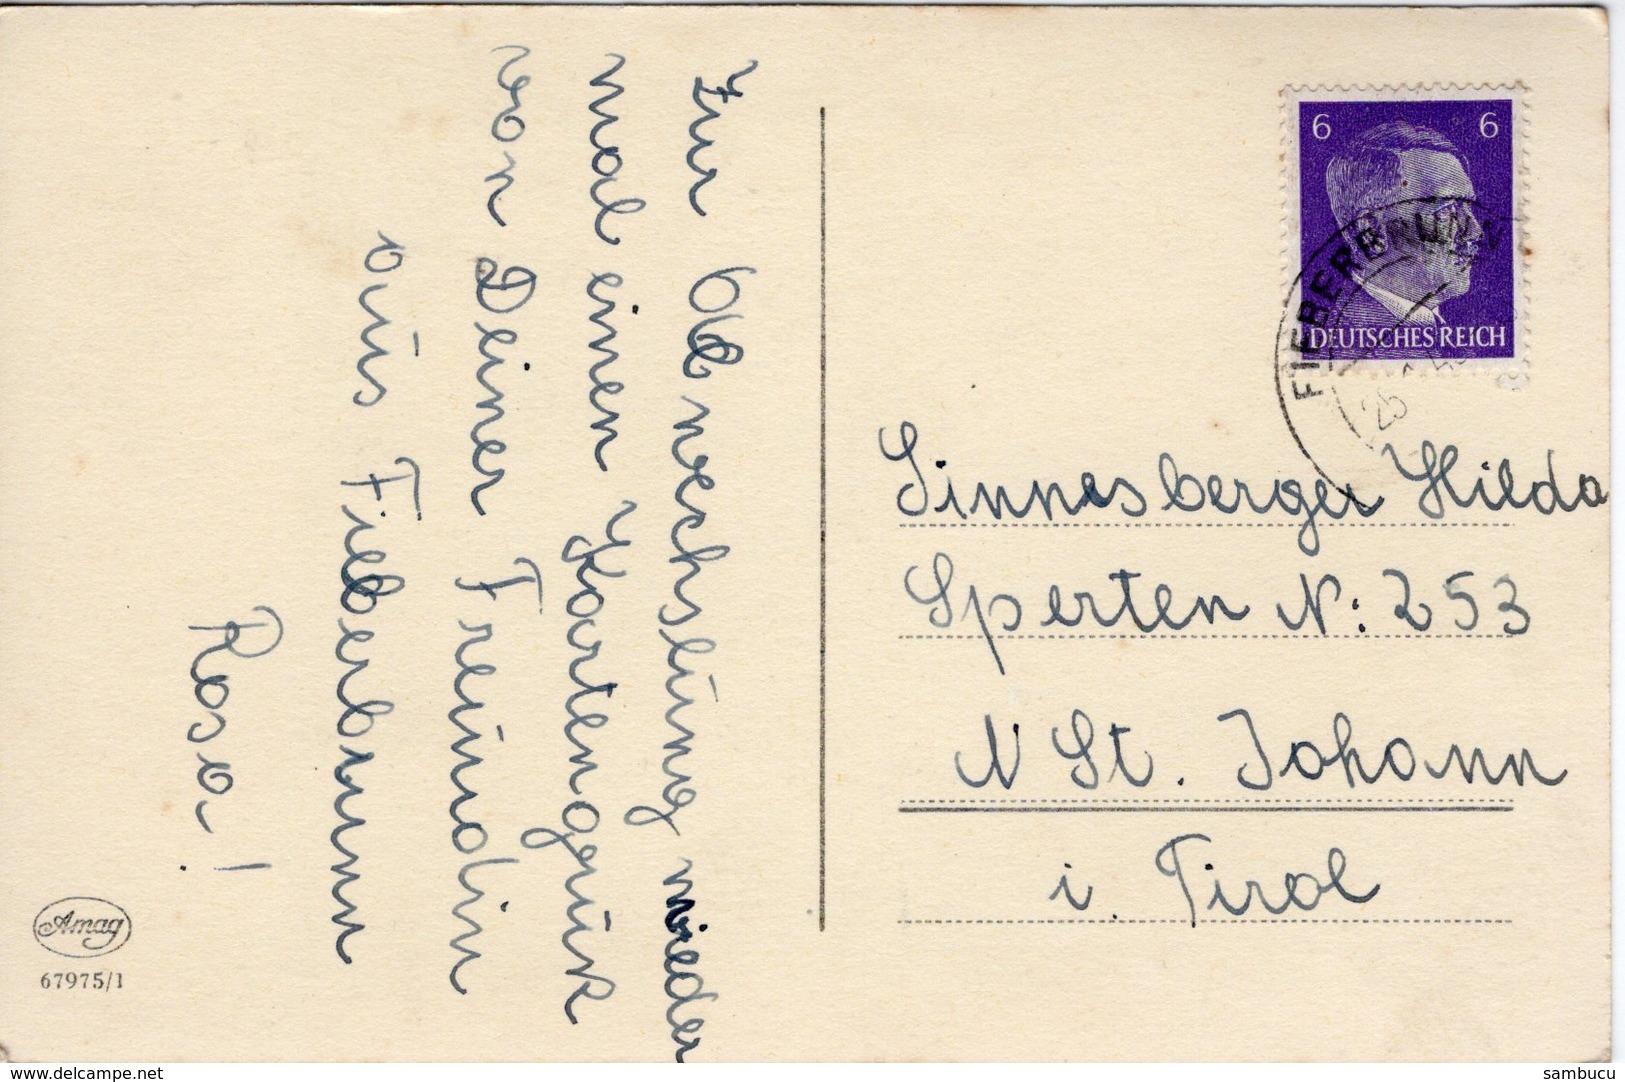 Zur Abwechslung wieder
mal einen Kartengruß
von Deiner Freundin
aus Fieberbrunn
Rosa!
Amag
67975/1
6 6
DEUTSCHES REICH
FIEBERBRUNN
25
Sinnesberger Hilda
Sperten N: 253
N St. Johann
i. Tirol
www.delcampe.net
sambucu